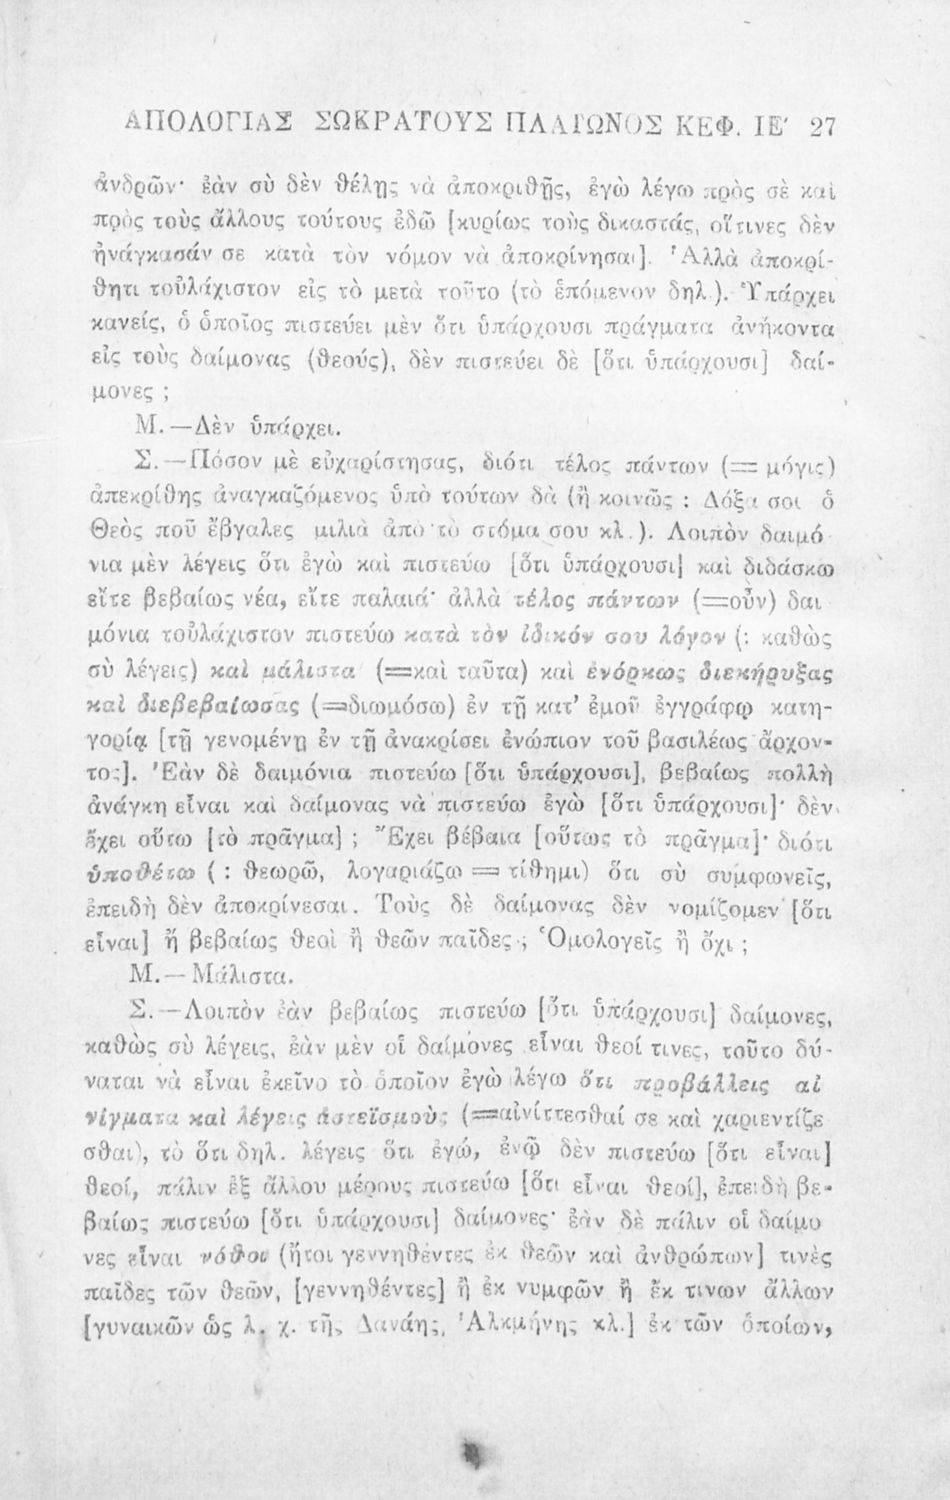 ΑΠΟΛΟΓΙΑΣ ΣΩΚΡΑΤΟΥΣ ΠΛΑΤΩΝΟΣ ΚΕΦ. ΙΕ' 27
ἀνδρῶν· ἐὰν σὺ δὲν θέλῃς νὰ ἀποκριθῇς, ἐγὼ λέγω πρὸς σὲ καὶ
πρὸς τοὺς ἄλλους τούτους ἐδῶ [κυρίως τοὺς δικαστάς, οἵτινες δὲν
ἠνάγκασάν σε κατὰ τὸν νόμον νὰ ἀποκρίνησαι]. Ἀλλὰ ἀποκρί-
θητι τοὐλάχιστον εἰς τὸ μετὰ τοῦτο (τὸ ἑπόμενον δηλ.). Ὑπάρχει
κανείς, ὁ ὁποῖος πιστεύει μὲν ὅτι ὑπάρχουσι πράγματα ἀνήκοντα
εἰς τοὺς δαίμονας (θεούς), δὲν πιστεύει δὲ [ὅτι ὑπάρχουσι] δαί-
μονες ;
Μ.—Δὲν ὑπάρχει.
Σ.—Πόσον μὲ εὐχαρίστησας, διότι τέλος πάντων (= μόγις)
ἀπεκρίθης ἀναγκαζόμενος ὑπὸ τούτων δὰ (ἢ κοινῶς : Δόξα σοι ὁ
Θεὸς ποῦ ἔβγαλες μιλιὰ ἀπὸ τὸ στόμα σου κλ.). Λοιπὸν δαιμό
νια μὲν λέγεις ὅτι ἐγὼ καὶ πιστεύω [ὅτι ὑπάρχουσι] καὶ διδάσκω
εἴτε βεβαίως νέα, εἴτε παλαιά· ἀλλὰ τέλος πάντων (=οὖν) δαι
μόνια τοὐλάχιστον πιστεύω κατὰ τὸν ἰδικόν σου λόγον (: καθὼς
σὺ λέγεις) καὶ μάλιστα (=καὶ ταῦτα) καὶ ἐνόρκως διεκήρυξας
καὶ διεβεβαίωσας (=διωμόσω) ἐν τῇ κατ' ἐμοῦ ἐγγράφῳ κατη-
γορίᾳ [τῇ γενομένῃ ἐν τῇ ἀνακρίσει ἐνώπιον τοῦ βασιλέως ἄρχον-
τος]. Ἐὰν δὲ δαιμόνια πιστεύω [ὅτι ὑπάρχουσι], βεβαίως πολλὴ
ἀνάγκη εἶναι καὶ δαίμονας νὰ πιστεύω ἐγὼ [ὅτι ὑπάρχουσι]· δὲν
ἔχει οὕτω [τὸ πρᾶγμα] ; Ἔχει βέβαια [οὕτως τὸ πρᾶγμα]· διότι
ὑποθέτω ( : θεωρῶ, λογαριάζω = τίθημι) ὅτι σὺ συμφωνεῖς,
ἐπειδὴ δὲν ἀποκρίνεσαι. Τοὺς δὲ δαίμονας δὲν νομίζομεν [ὅτι
εἶναι] ἢ βεβαίως θεοὶ ἢ θεῶν παῖδες ; Ὁμολογεῖς ἢ ὄχι ;
Μ.—Μάλιστα.
Σ.—Λοιπὸν ἐὰν βεβαίως πιστεύω [ὅτι ὑπάρχουσι] δαίμονες,
καθὼς σὺ λέγεις, ἐὰν μὲν οἱ δαίμονες εἶναι θεοί τινες, τοῦτο δύ-
ναται νὰ εἶναι ἐκεῖνο τὸ ὁποῖον ἐγὼ λέγω ὅτι προβάλλεις αἰ
νίγματα καὶ λέγεις ἀστεϊσμοὺς (=αἰνίττεσθαί σε καὶ χαριεντίζε
σθαι), τὸ ὅτι δηλ. λέγεις ὅτι ἐγώ, ἐνῷ δὲν πιστεύω [ὅτι εἶναι]
θεοί, πάλιν ἐξ ἄλλου μέρους πιστεύω [ὅτι εἶναι θεοί], ἐπειδὴ βε-
βαίως πιστεύω [ὅτι ὑπάρχουσι] δαίμονες· ἐὰν δὲ πάλιν οἱ δαίμο
νες εἶναι νόθοι (ἤτοι γεννηθέντες ἐκ θεῶν καὶ ἀνθρώπων] τινὲς
παῖδες τῶν θεῶν, [γεννηθέντες] ἢ ἐκ νυμφῶν ἢ ἔκ τινων ἄλλων
[γυναικῶν ὡς λ. χ. τῆς Δανάης, Ἀλκμήνης κλ.] ἐκ τῶν ὁποίων,